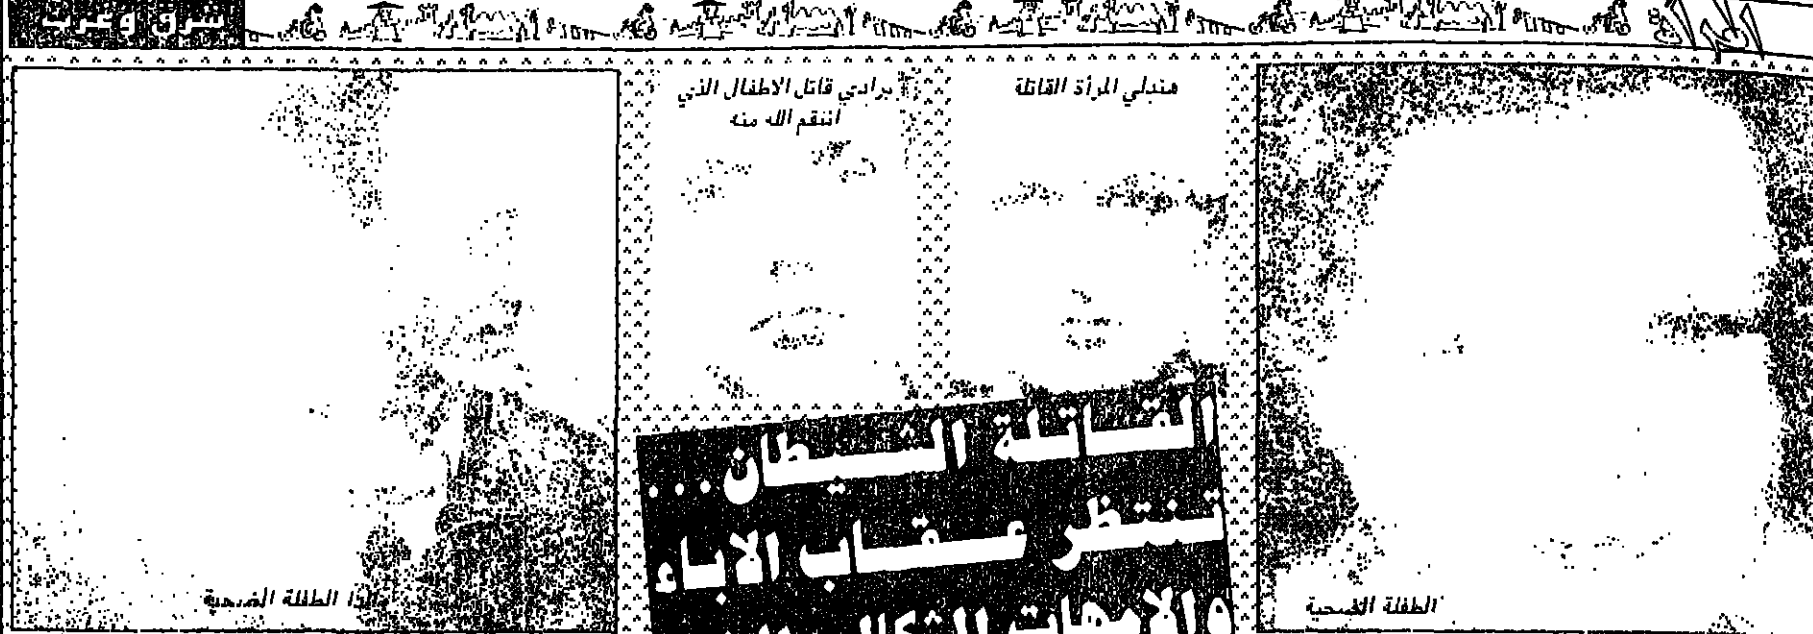 شرق وغرب
هندلي المرأة القاتلة
برادي قاتل الاطفال الذي
انتقم الله منه
القاتلة الشيطان...
تنتظر عقاب الاباء
والامهات الثكالى
الطفلة الضحية
والدا الطفلة الضحية